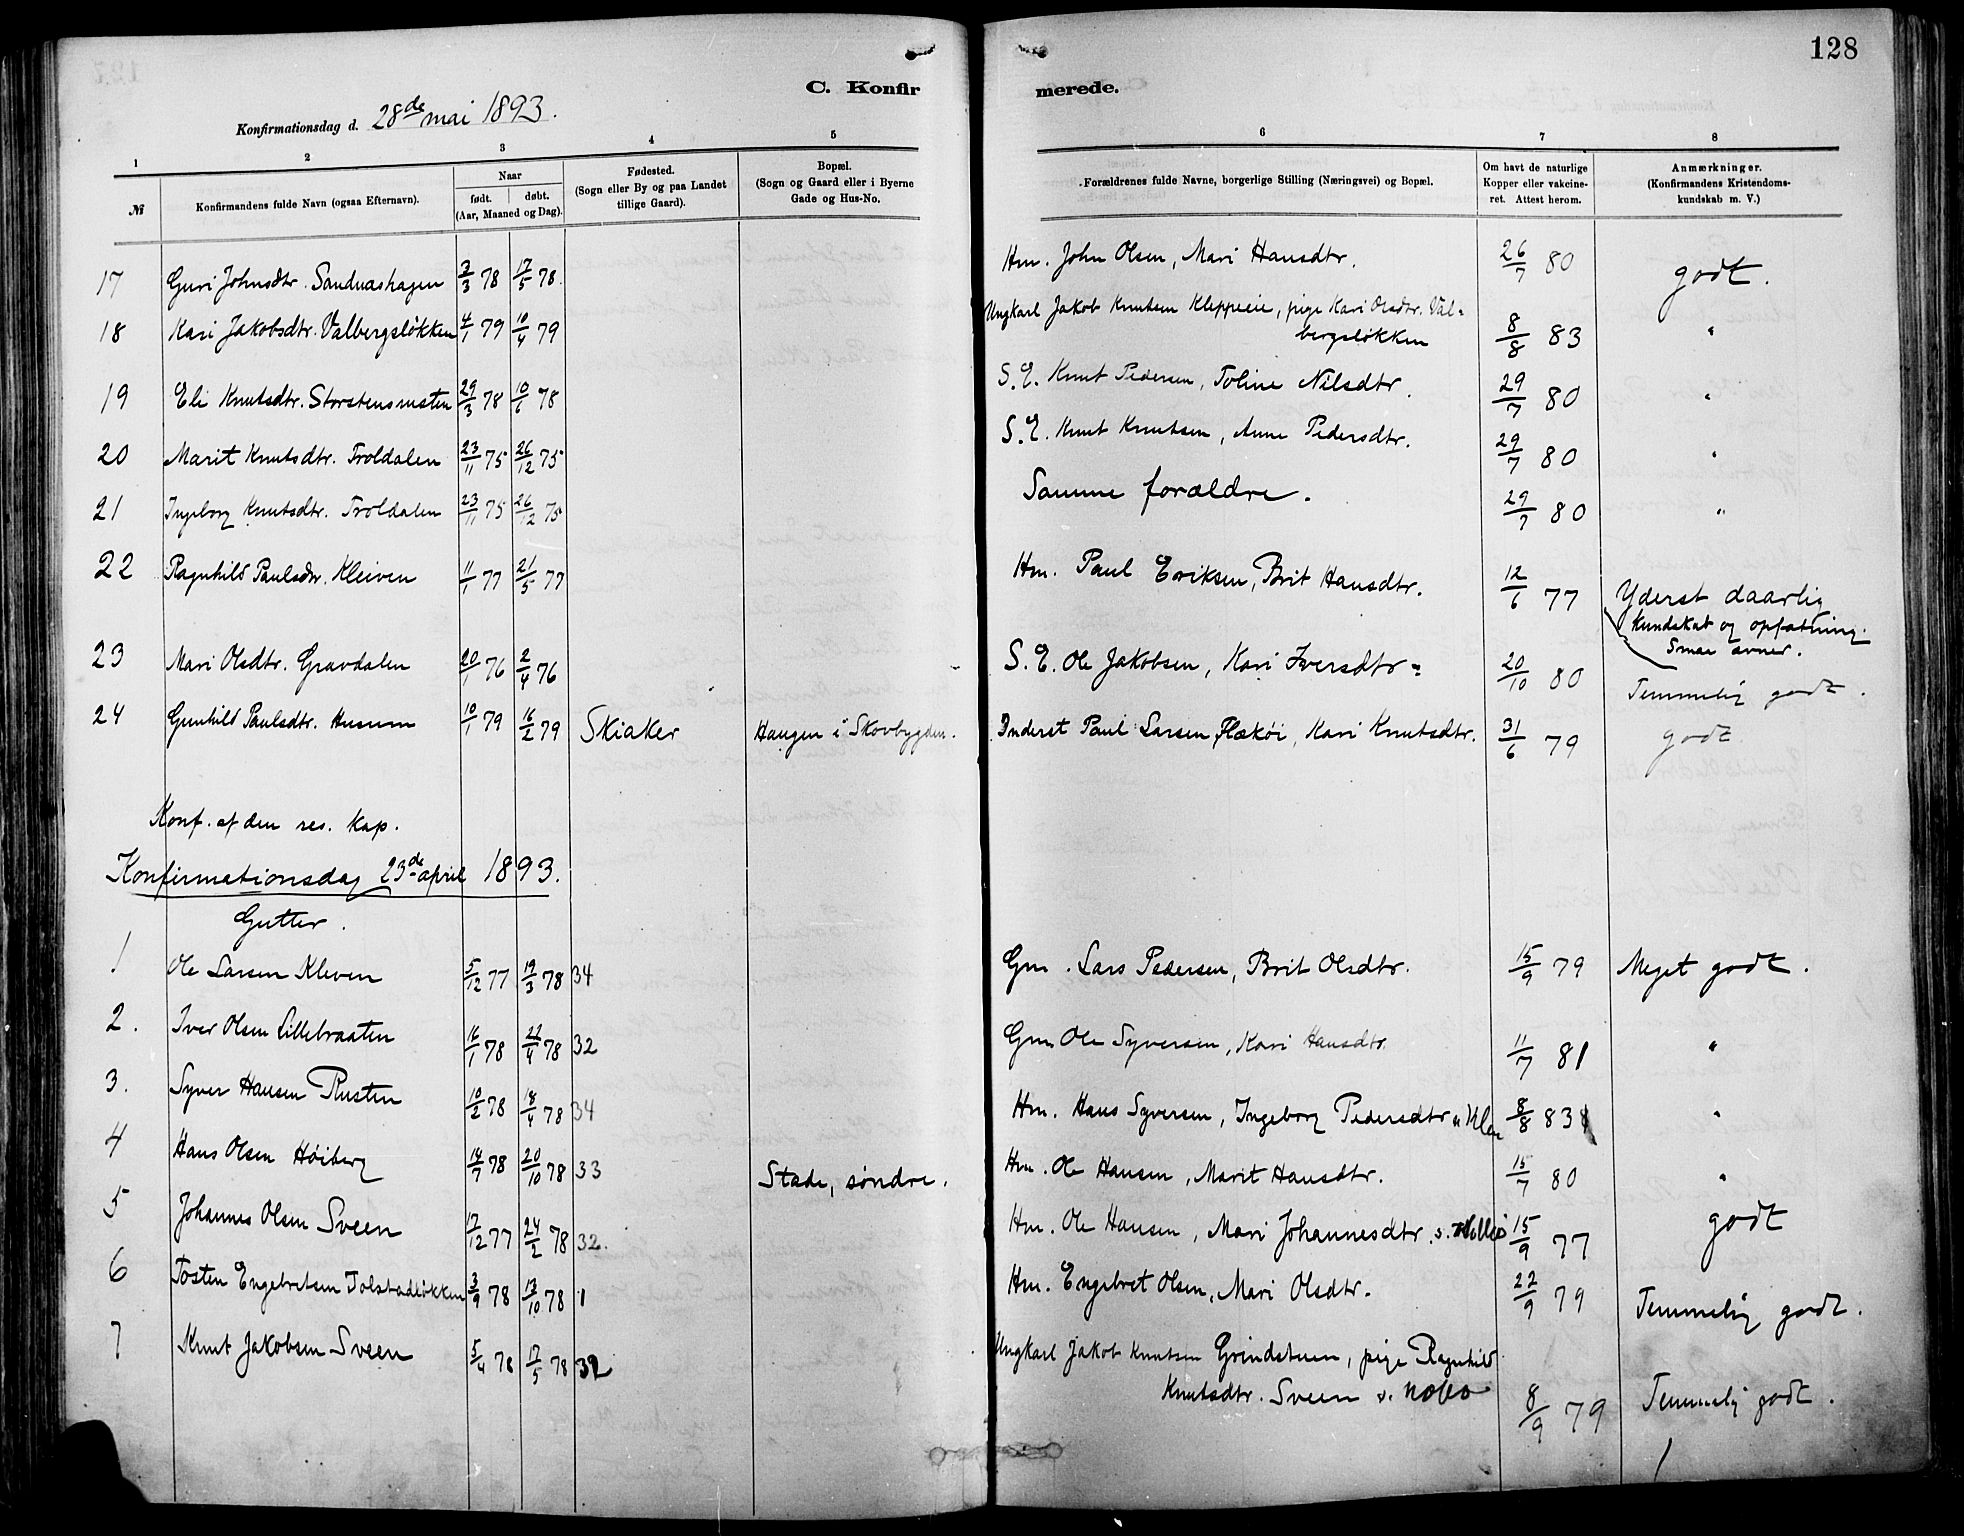 128
C. Konfirmerede.
Konfirmationsdag d. 28de mai 1893.
1 2 3 4 5 6 7 8
№ Konfirmandens fulde Navn (ogsaa Efternavn). Naar født. døbt. (Aar, Maaned og Dag). Fødested. (Sogn eller By og paa Landet tillige Gaard). Bopæl. (Sogn og Gaard eller i Byerne Gade og Hus-No. Forældrenes fulde Navne, borgerlige Stilling (Næringsvei) og Bopæl. Om havt de naturlige Kopper eller vakcineret. Attest herom. Anmærkninger. (Konfirmandens Kristendomskundskab m. V.)
17 Guri Johnsdtr. Sandnæshagen 3/3 78 17/5 78. Hm. John Olsen, Mari Hansdtr. 26/7 80 godt.
18 Kari Jakobsdtr. Valbergsløkken 4/1 79 10/4 79 Ungkarl Jakob Knutsen Kleppeeie, pige Kari Olsdtr. Val-
bergsløkken 8/8 83 "
19 Eli Knutsdtr. Storstensrusten 29/3 78 10/6 78 S.E. Knut Pedersen, Toline Nilsdtr. 29/7 80 "
20 Marit Knutsdtr. Troldalen 23/11 75 26/12 75 S.E. Knut Knutsen, Anne Pedersdtr. 29/7 80 "
21 Ingeborg Knutsdtr. Troldalen 23/11 75 26/12 75 Samme forældre. 29/7 80 "
22 Ragnhild Paulsdtr. Kleiven 11/1 77 21/5 77 Hm. Paul Eriksen, Brit Hansdtr. 12/6 77 Yderst daarlig
kundskab og opfatning.
Smaaævner.
23 Mari Olsdtr. Gravdalen 20/1 76 2/4 76 S.E. Ole Jakobsen, Kari Iversdtr. 20/10 80 Temmelig godt.
24 Gunhild Paulsdtr. Husum 10/1 79 16/2 79 Skiaker Haugen i Skovbygden. Inderst Paul Larsen Flækøi, Kari Knutsdtr. 31/6 79 godt.
Konf. af den res. kap.
Konfirmationsdag 23de april 1893.
Gutter.
1 Ole Larsen Kleven 5/12 77 19/3 78 34 Gm. Lars Pedersen, Brit Olsdtr. 15/9 79 Meget godt.
2. Iver Olsen Lillebraaten 16/1 78 22/4 78 32 Gm. Ole Syversen, Kari Hansdtr. 11/7 81 "
3. Syver Hansen Rusten 10/2 78 18/4 78 34 Hm. Hans Syversen, Ingeborg Pedersdtr 8/8 83 "
4 Hans Olsen Høiberg 14/7 78 20/10 78 33 Stade, søndre. Hm. Ole Hansen, Marit Hansdtr. 15/7 80 "
5 Johannes Olsen Sveen 17/12 77 24/2 78 32. Hm. Ole Hansen, Mari Johannesdtr. 15/9 77 godt
6 Tosten Engebretsen Tolstadløkken 3/9 78 13/10 78 1 Hm. Engebret Olsen, Mari Olsdtr. 22/9 79 Temmelig godt.
7 Knut Jakobsen Sveen 5/4 78 17/5 78 32 Ungkarl Jakob Knutsen Grindstuen, pige Ragnhild
Knutsdtr. Sveen 8/9 79 Temmelig godt.